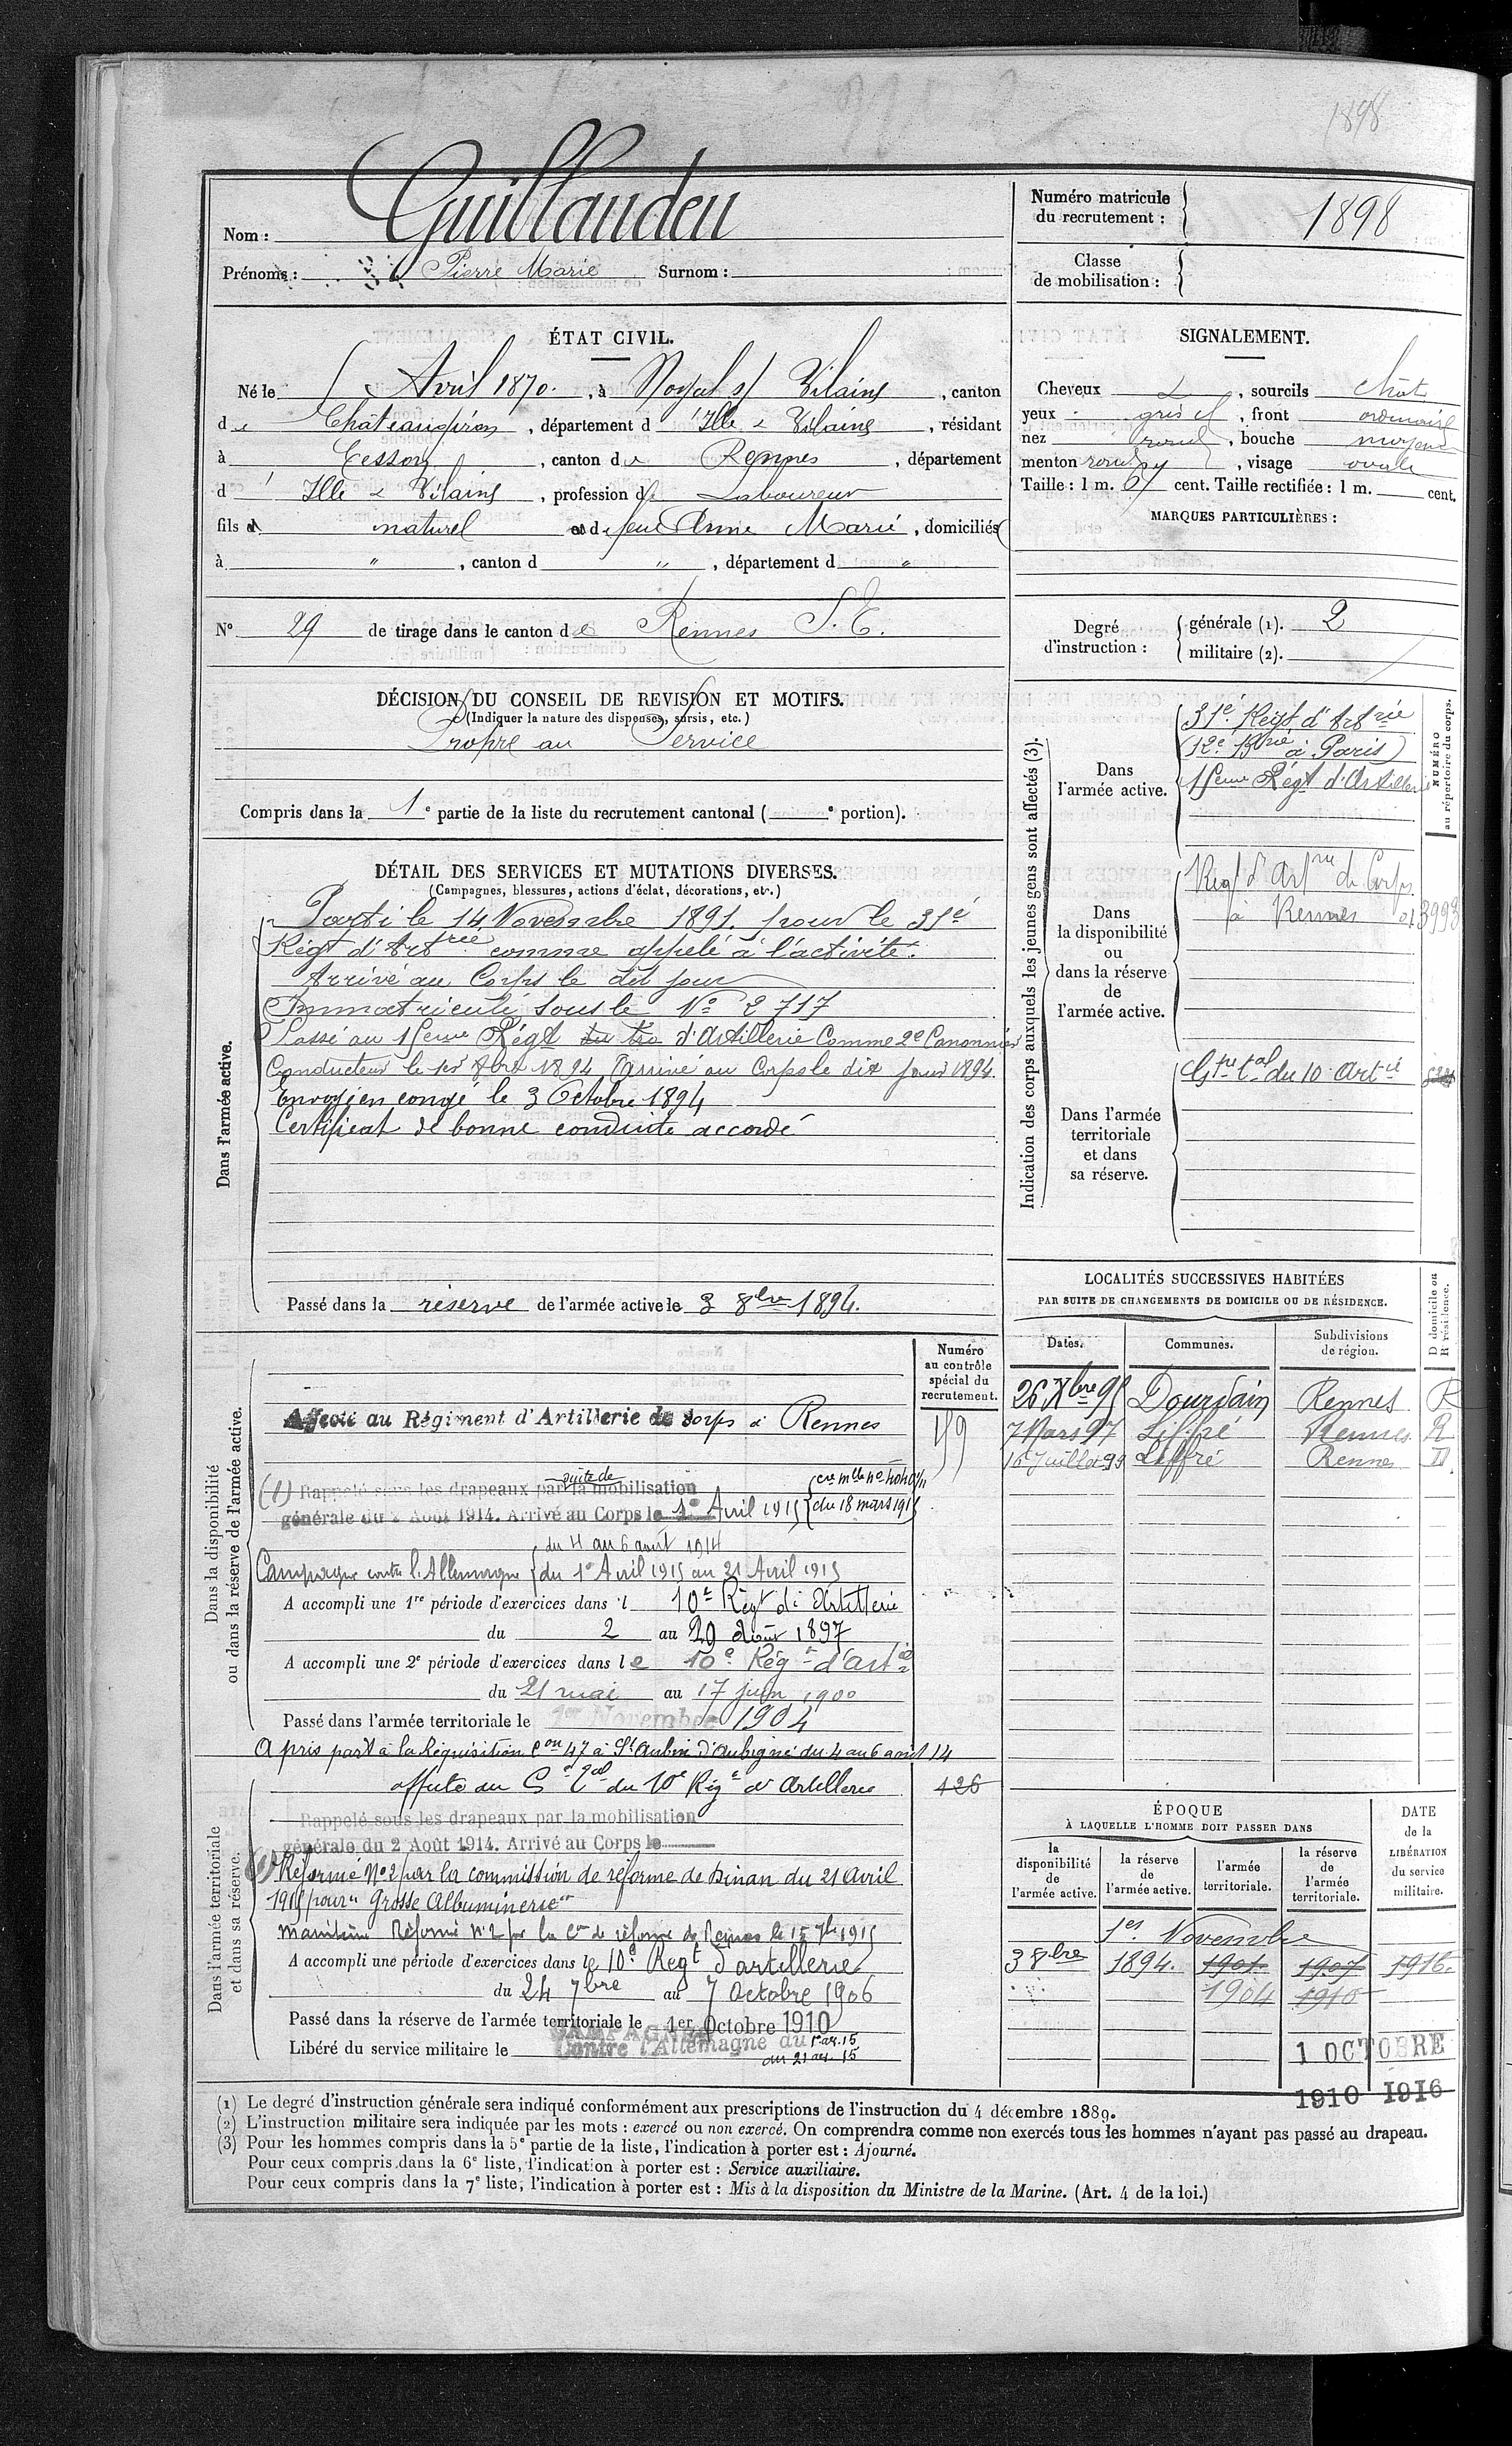 1898
Nom : Guillaudeu
Prénoms : Pierre Marie Surnom :
Numéro matricule du recrutement : 1898
Classe de mobilisation :
ÉTAT CIVIL.
Né le Avril 1870, à Noyal s/ Vilaine, canton
de Châteaugiron, département d'Ille & Vilaine, résidant
à Cesson, canton de Rennes, département
d' Ille & Vilaine, profession de Laboureur
fils d naturel et de feue Anne Marie, domiciliés
à " , canton d " , département d "
N° 29 de tirage dans le canton de Rennes S. E.
SIGNALEMENT.
Cheveux , sourcils chât
yeux gris , front ordinaire
nez rond , bouche moyenne
menton rond , visage ovale
Taille : 1 m. 67 cent. Taille rectifiée : 1 m. cent.
MARQUES PARTICULIÈRES :
Degré d'instruction : générale (1). 2
militaire (2).
DÉCISION DU CONSEIL DE REVISION ET MOTIFS.
(Indiquer la nature des dispenses, sursis, etc.)
Propre au Service
Compris dans la 1e partie de la liste du recrutement cantonal ( e portion).
DÉTAIL DES SERVICES ET MUTATIONS DIVERSES.
(Campagnes, blessures, actions d'éclat, décorations, etc.)
Dans l'armée active.
Parti le 14 Novembre 1891. pour le 31e
Régt d'Artrie comme appelé à l'activité.
Arrivé au Corps le dit jour
Immatriculé sous le No 2717
Passé au 15eme Régt d'Artillerie Comme 2e Canonnier
Conducteur le 1er 1894 Arrivé au Corps le dit jour 1894.
Envoyé en congé le 3 Octobre 1894
Certificat de bonne conduite accordé
Passé dans la réserve de l'armée active le 3 8bre 1894.
Indication des corps auxquels les jeunes gens sont affectés (3).
NUMÉRO au répertoire du corps.
Dans l'armée active.
31e Régt d'Artrie
(12e Brie à Paris)
15eme Régt d'Artillerie
Dans la disponibilité ou dans la réserve de l'armée active.
Régt d'Artrie de Corps
à Rennes 013993
Dans l'armée territoriale et dans sa réserve.
Gpe tal du 10 Artie
LOCALITÉS SUCCESSIVES HABITÉES
PAR SUITE DE CHANGEMENTS DE DOMICILE OU DE RÉSIDENCE.
Dates. Communes. Subdivisions de région. D domicile ou R résidence.
26 Xbre 95 Dourdain Rennes R
7 Mars 97 Liffré Rennes R
16 Juillet 99 Liffré Rennes D
Dans la disponibilité ou dans la réserve de l'armée active.
Numéro au contrôle spécial du recrutement.
Affecté au Régiment d'Artillerie de corps à Rennes
(1) Rappelé sous les drapeaux par suite de la mobilisation
générale du 2 Août 1914. Arrivé au Corps le 1er Avril 1915 du 18 mars 1915
du 4 au 6 août 1914
Campagne contre l'Allemagne du 1er Avril 1915 au 21 Avril 1915
A accompli une 1re période d'exercices dans l 10e Régt d'Artillerie
du 2 au 29 Août 1897
A accompli une 2e période d'exercices dans le 10e Régt d'artie
du 21 mai au 17 juin 1900
Passé dans l'armée territoriale le 1er Novembre 1904
A pris part à la Réquisition con 47 à St Aubin d'Aubigné du 4 au 6 août 14
Dans l'armée territoriale et dans sa réserve.
affecté au Ge tal du 10e Régt d'Artillerie 426
Rappelé sous les drapeaux par la mobilisation
générale du 2 Août 1914. Arrivé au Corps le
(1) Réformé No 2 par la commission de réforme de Dinan du 21 Avril
1915 pour "Grosse Albuminerie"
Maintenu Réformé No 2 par la Con de réforme de Rennes le 15 7bre 1915
A accompli une période d'exercices dans le 10e Régt d'artillerie
du 24 7bre au 7 Octobre 1906
Passé dans la réserve de l'armée territoriale le 1er Octobre 1910
Libéré du service militaire le
CAMPAGNE
Contre l'Allemagne du 1er av. 15
au 21 av. 15
ÉPOQUE
À LAQUELLE L'HOMME DOIT PASSER DANS
la disponibilité de l'armée active. la réserve de l'armée active. l'armée territoriale. la réserve de l'armée territoriale.
DATE de la LIBÉRATION du service militaire.
1er Novembre
3 8bre 1894. 1901. 1907 1916.
1904 1910
1 OCTOBRE
1910 1916
(1) Le degré d'instruction générale sera indiqué conformément aux prescriptions de l'instruction du 4 décembre 1889.
(2) L'instruction militaire sera indiquée par les mots : exercé ou non exercé. On comprendra comme non exercés tous les hommes n'ayant pas passé au drapeau.
(3) Pour les hommes compris dans la 5e partie de la liste, l'indication à porter est : Ajourné.
Pour ceux compris dans la 6e liste, l'indication à porter est : Service auxiliaire.
Pour ceux compris dans la 7e liste, l'indication à porter est : Mis à la disposition du Ministre de la Marine. (Art. 4 de la loi.)